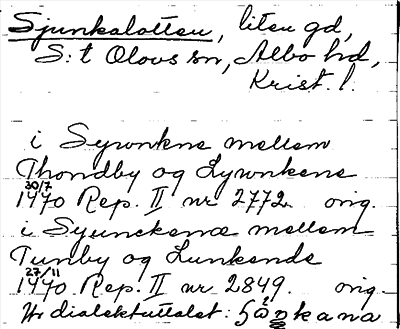 Sjunkalotten, liten gd,
S:t Olovs sn, Albo hd,
Krist. l.
i Sywnkne mellem
Thondby og Lywnkene
30/7
1470 Rep. II nr 2772. orig.
i Syunckenæ mellem
Tunby og Lunkende
27/11
1470 Rep. II nr 2849. orig.
Ur dialektuttalet: